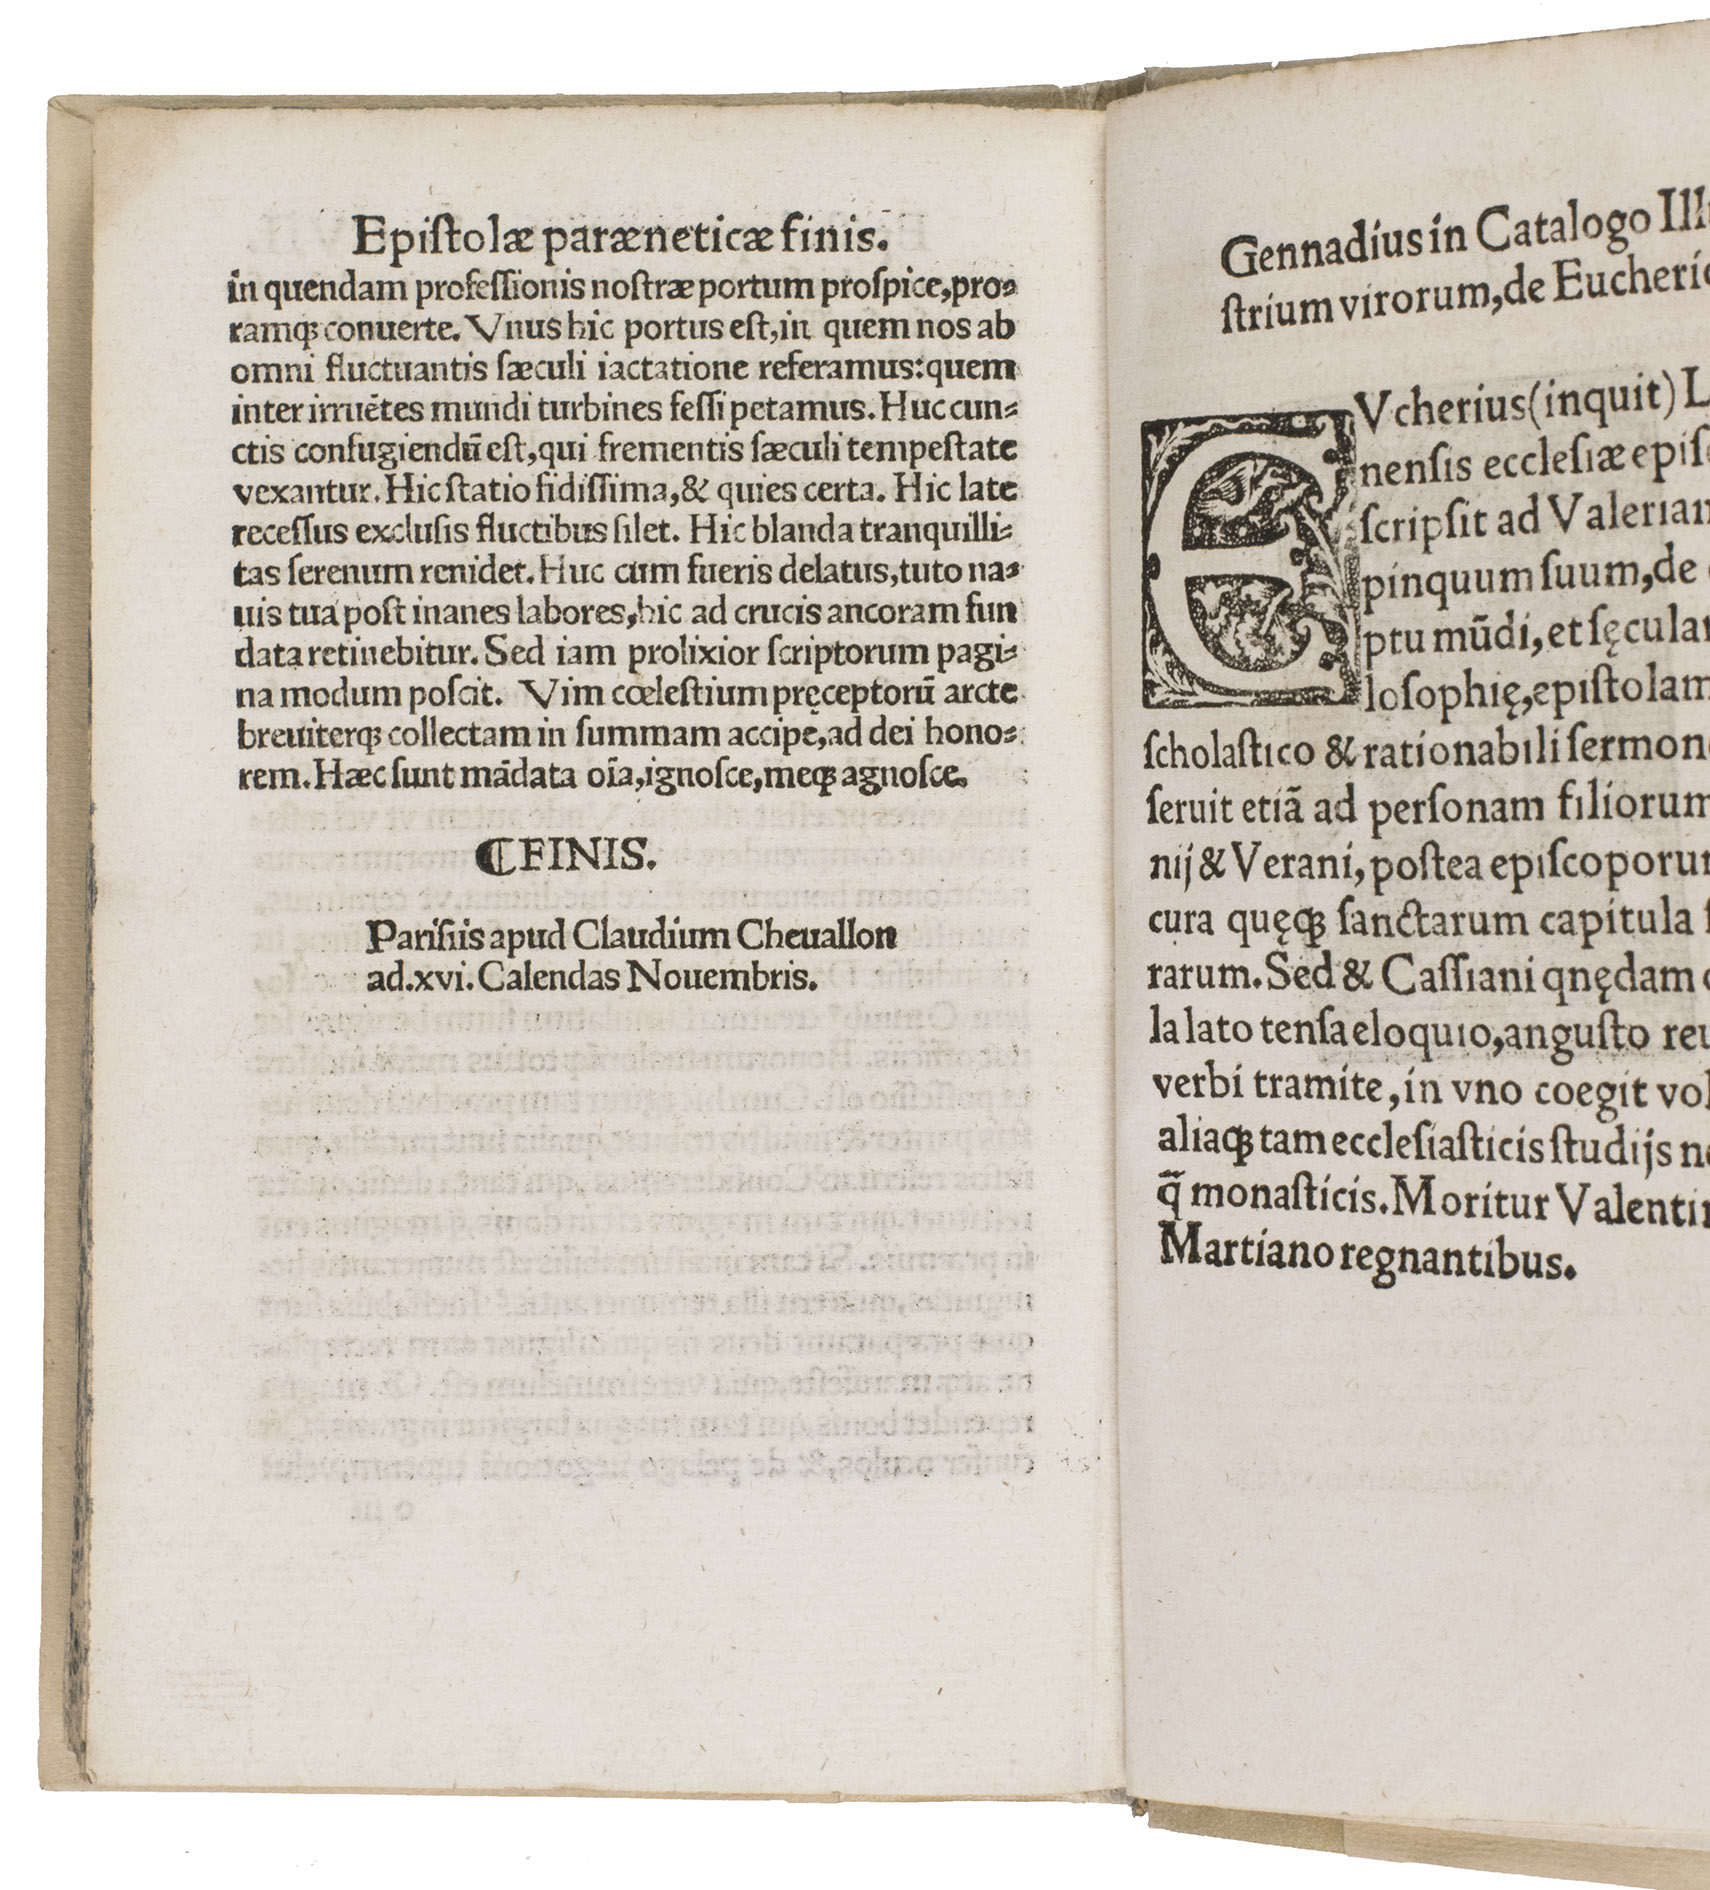 Epiſtolæ paræneticæ finis.
in quendam profeſſionis noſtræ portum proſpice, pro⸗
ramqꝫ conuerte. Vnus hic portus eſt, in quem nos ab
omni fluctuantis ſæculi iactatione referamus: quem
inter irruẽtes mundi turbines feſſi petamus. Huc cun⸗
ctis confugiendũ eſt, qui frementis ſæculi tempeſtate
vexantur. Hic ſtatio fidiſſima, & quies certa. Hic late
receſſus excluſis fluctibus ſilet. Hic blanda tranquilli⸗
tas ſerenum renidet. Huc cum fueris delatus, tuto na⸗
uis tua poſt inanes labores, hic ad crucis ancoram fun
data retinebitur. Sed iam prolixior ſcriptorum pagi⸗
na modum poſcit. Vim cœleſtium pręceptorũ arcte
breuiterqꝫ collectam in ſummam accipe, ad dei hono⸗
rem. Hæc ſunt mãdata oĩa, ignoſce, meqꝫ agnoſce.
⸿FINIS.
Pariſiis apud Claudium Cheuallon
ad.xvi. Calendas Nouembris.
Gennadius in Catalogo Illu
ſtrium virorum, de Eucherio
EVcherius (inquit) L
nenſis eccleſiæ epiſc
ſcripſit ad Valerian
pinquum ſuum, de
ptu mũdi, et ſęcular
loſophię, epiſtolam
ſcholaſtico & rationabili ſermon
ſeruit etiã ad perſonam filiorum
nij & Verani, poſtea epiſcoporum
cura quęqꝫ ſanctarum capitula
rarum. Sed & Caſſiani qnędam
la lato tenſa eloquio, anguſto reu
verbi tramite, in vno coegit vol
aliaqꝫ tam eccleſiaſticis ſtudijs ne
q̃ monaſticis. Moritur Valentin
Martiano regnantibus.